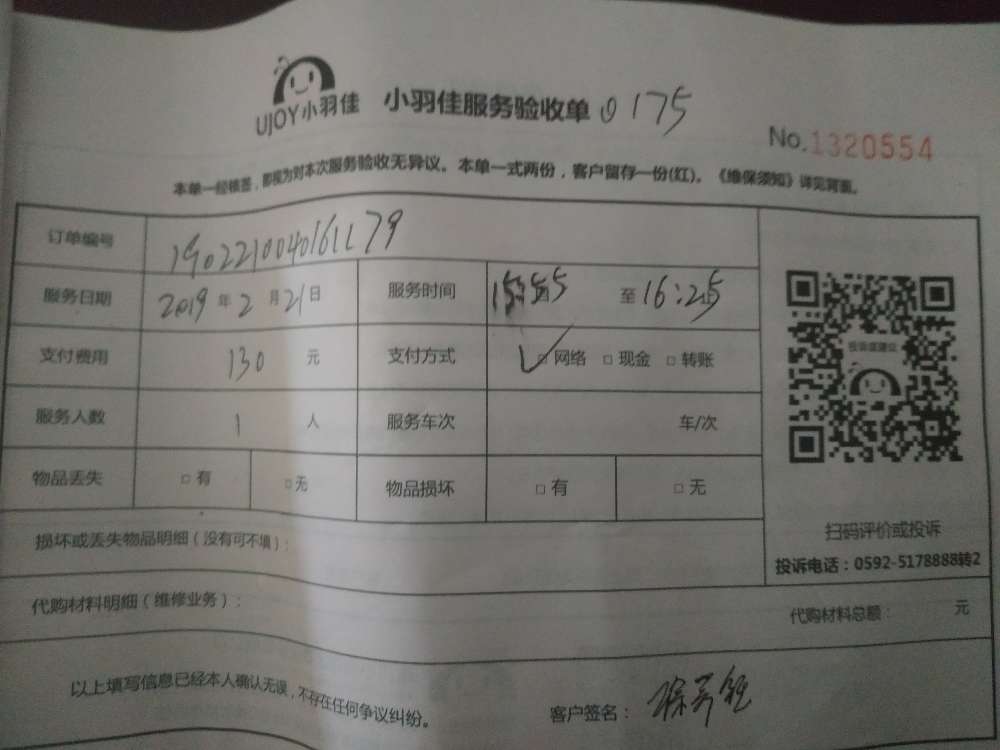 UJOY小羽佳 小羽佳服务验收单 0175
No.1320554
本单一经核签，即视为对本次服务验收无异议。本单一式两份，客户留存一份(红)。《维保须知》详见背面。
订单编号 19022100401611 79
服务日期 2019年2月21日 服务时间 至16:25
支付费用 130元 支付方式 ✓□网络 □现金 □转账
服务人数 1人 服务车次 车/次
物品丢失 □有 □无 物品损坏 □有 □无
损坏或丢失物品明细（没有可不填）：
投诉或建议
扫码评价或投诉
投诉电话：0592-5178888转2
代购材料明细（维修业务）：
代购材料总额： 元
以上填写信息已经本人确认无误，不存在任何争议纠纷。
客户签名：